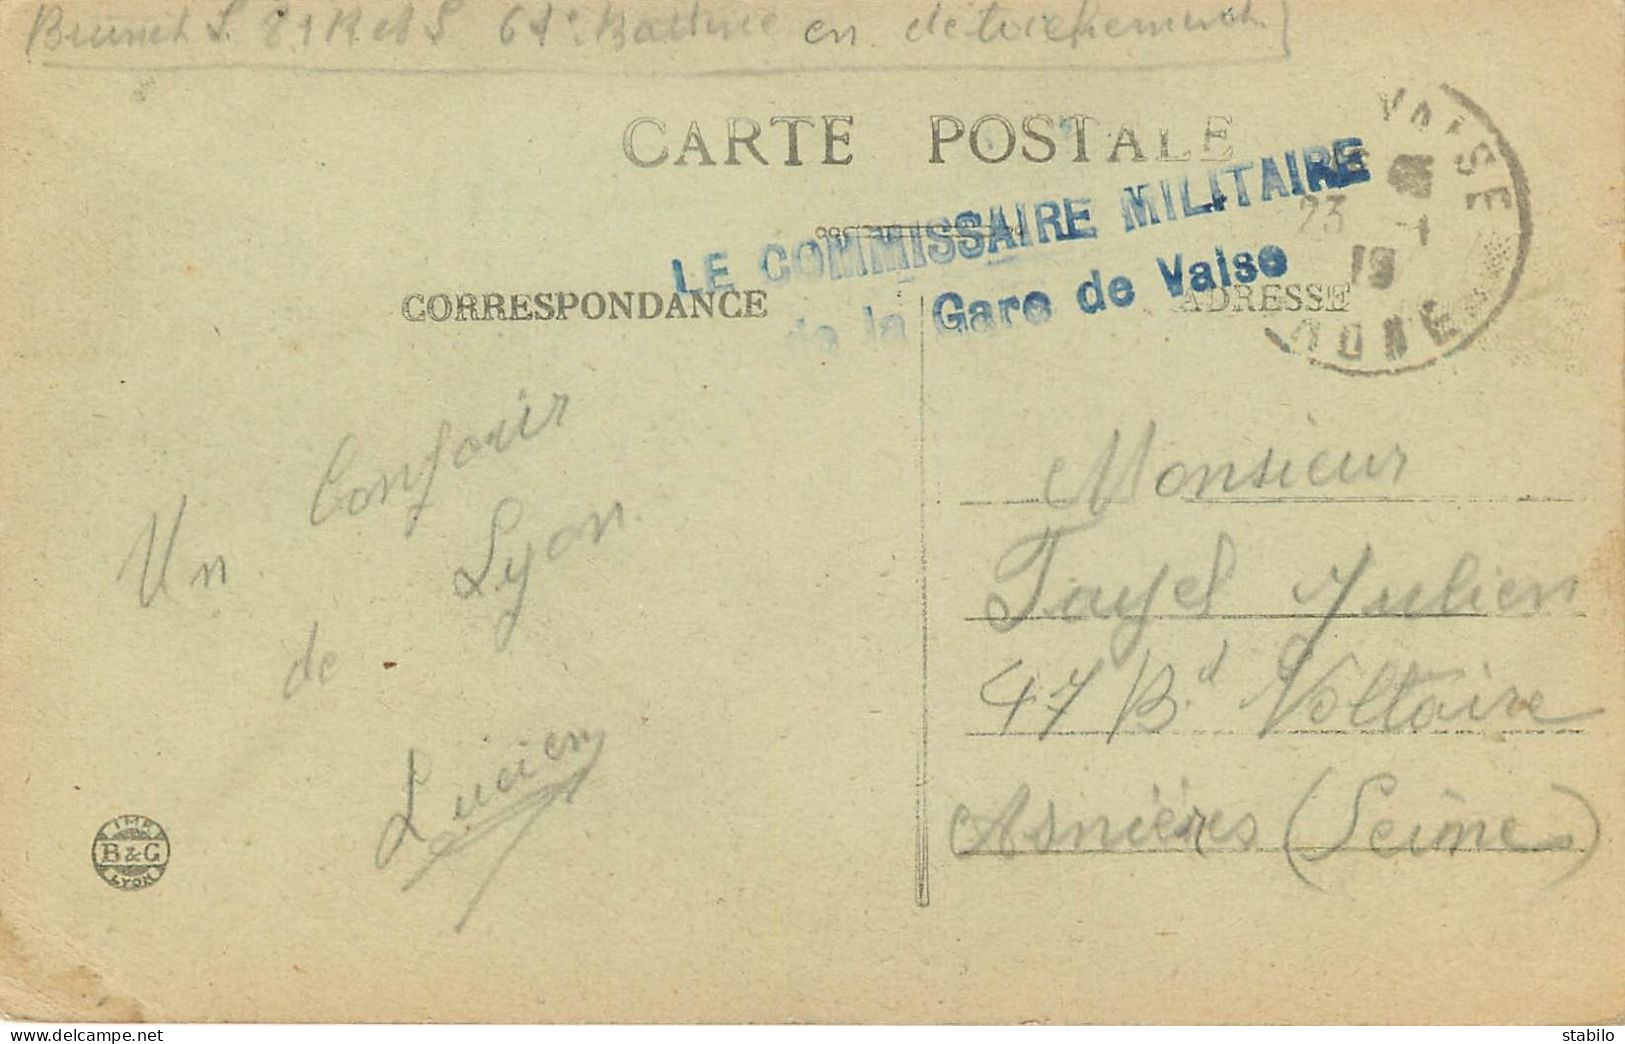 Brunet L. 81 R et S 61e Batterie en détachement
CARTE POSTALE
LE COMMISSAIRE MILITAIRE
de la Gare de Vaise
VAISE
23 -1
19
RHONE
CORRESPONDANCE
ADRESSE
Un Conjour
de Lyon.
Lucien
Monsieur
Fayel Julien
47 Bd Voltaire
Asnières (Seine)
IMP.
B & G
LYON
stabilo